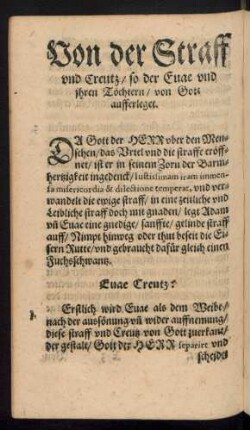 Von der Straff
vnd Creutz / so der Euae vnd
jhren Töchtern / von Gott
aufferleget.
DA Gott der HERR vber den Men-
schen / das Vrtel vnd die straffe eröff-
net / ist er in seinen Zorn der Barm-
hertzigkeit ingedenck / iustissimam iram immen-
sa misericordia & dilectione temperat, vnd ver-
wandelt die ewige straff / in eine zeitliche vnd
Leibliche straff doch mit gnaden / legt Adam
vñ Euae eine gnedige / sanffte / gelinde straff
auff / Nimpt hinweg oder thut beseit die Ei-
sern Rutte / vnd gebraucht dafür gleich einen
Fuchsschwantz.
Euae Creutz?
1. Erstlich wird Euae als dem Weibe /
nach der aussönung vñ wider auffnemung /
diese straff vnd Creutz von Gott zuerkant /
der gestalt / Gott der HERR separirt vnd
scheidet